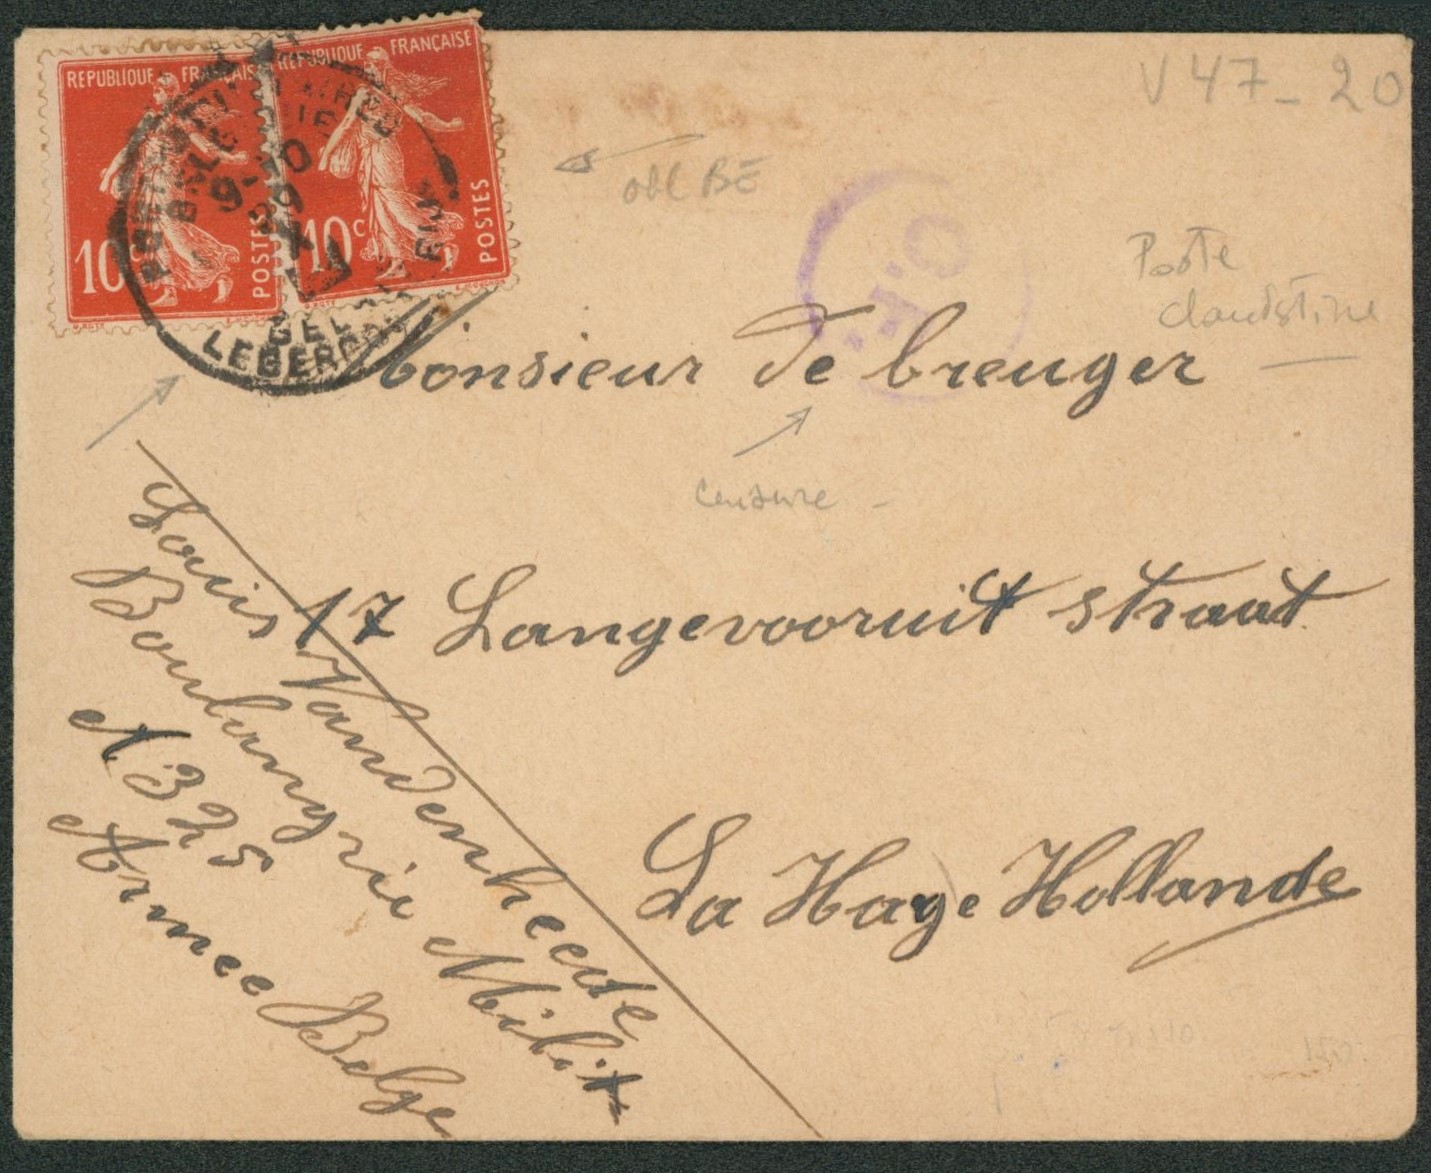 REPUBLIQUE FRANÇAISE
10c
POSTES
REPUBLIQUE FRANÇAISE
10c
POSTES
9-10
29
X
LEGERPOST
V 47 - 20
obl BE
C.F.
Poste
clandstine
Monsieur De breuger
Censure -
17 Langevooruit straat
La Haye Hollande
Louis Vandenheede
Boulangrie Milit
N 325
Armee Belge
150